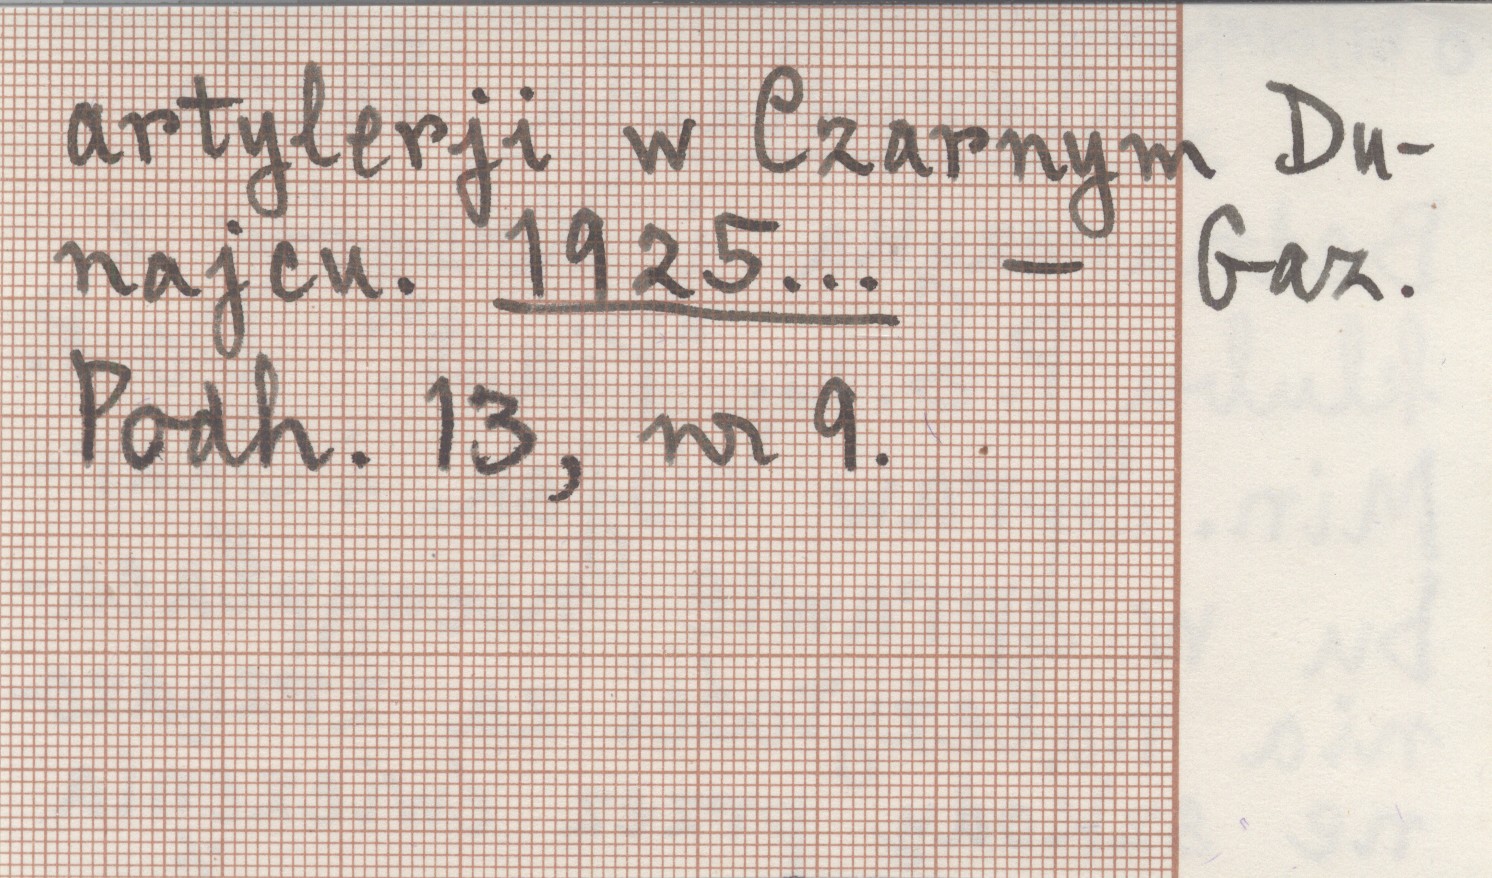 artylerji w Czarnym Du-
najcu. 1925... – Gaz.
Podh. 13, nr 9.